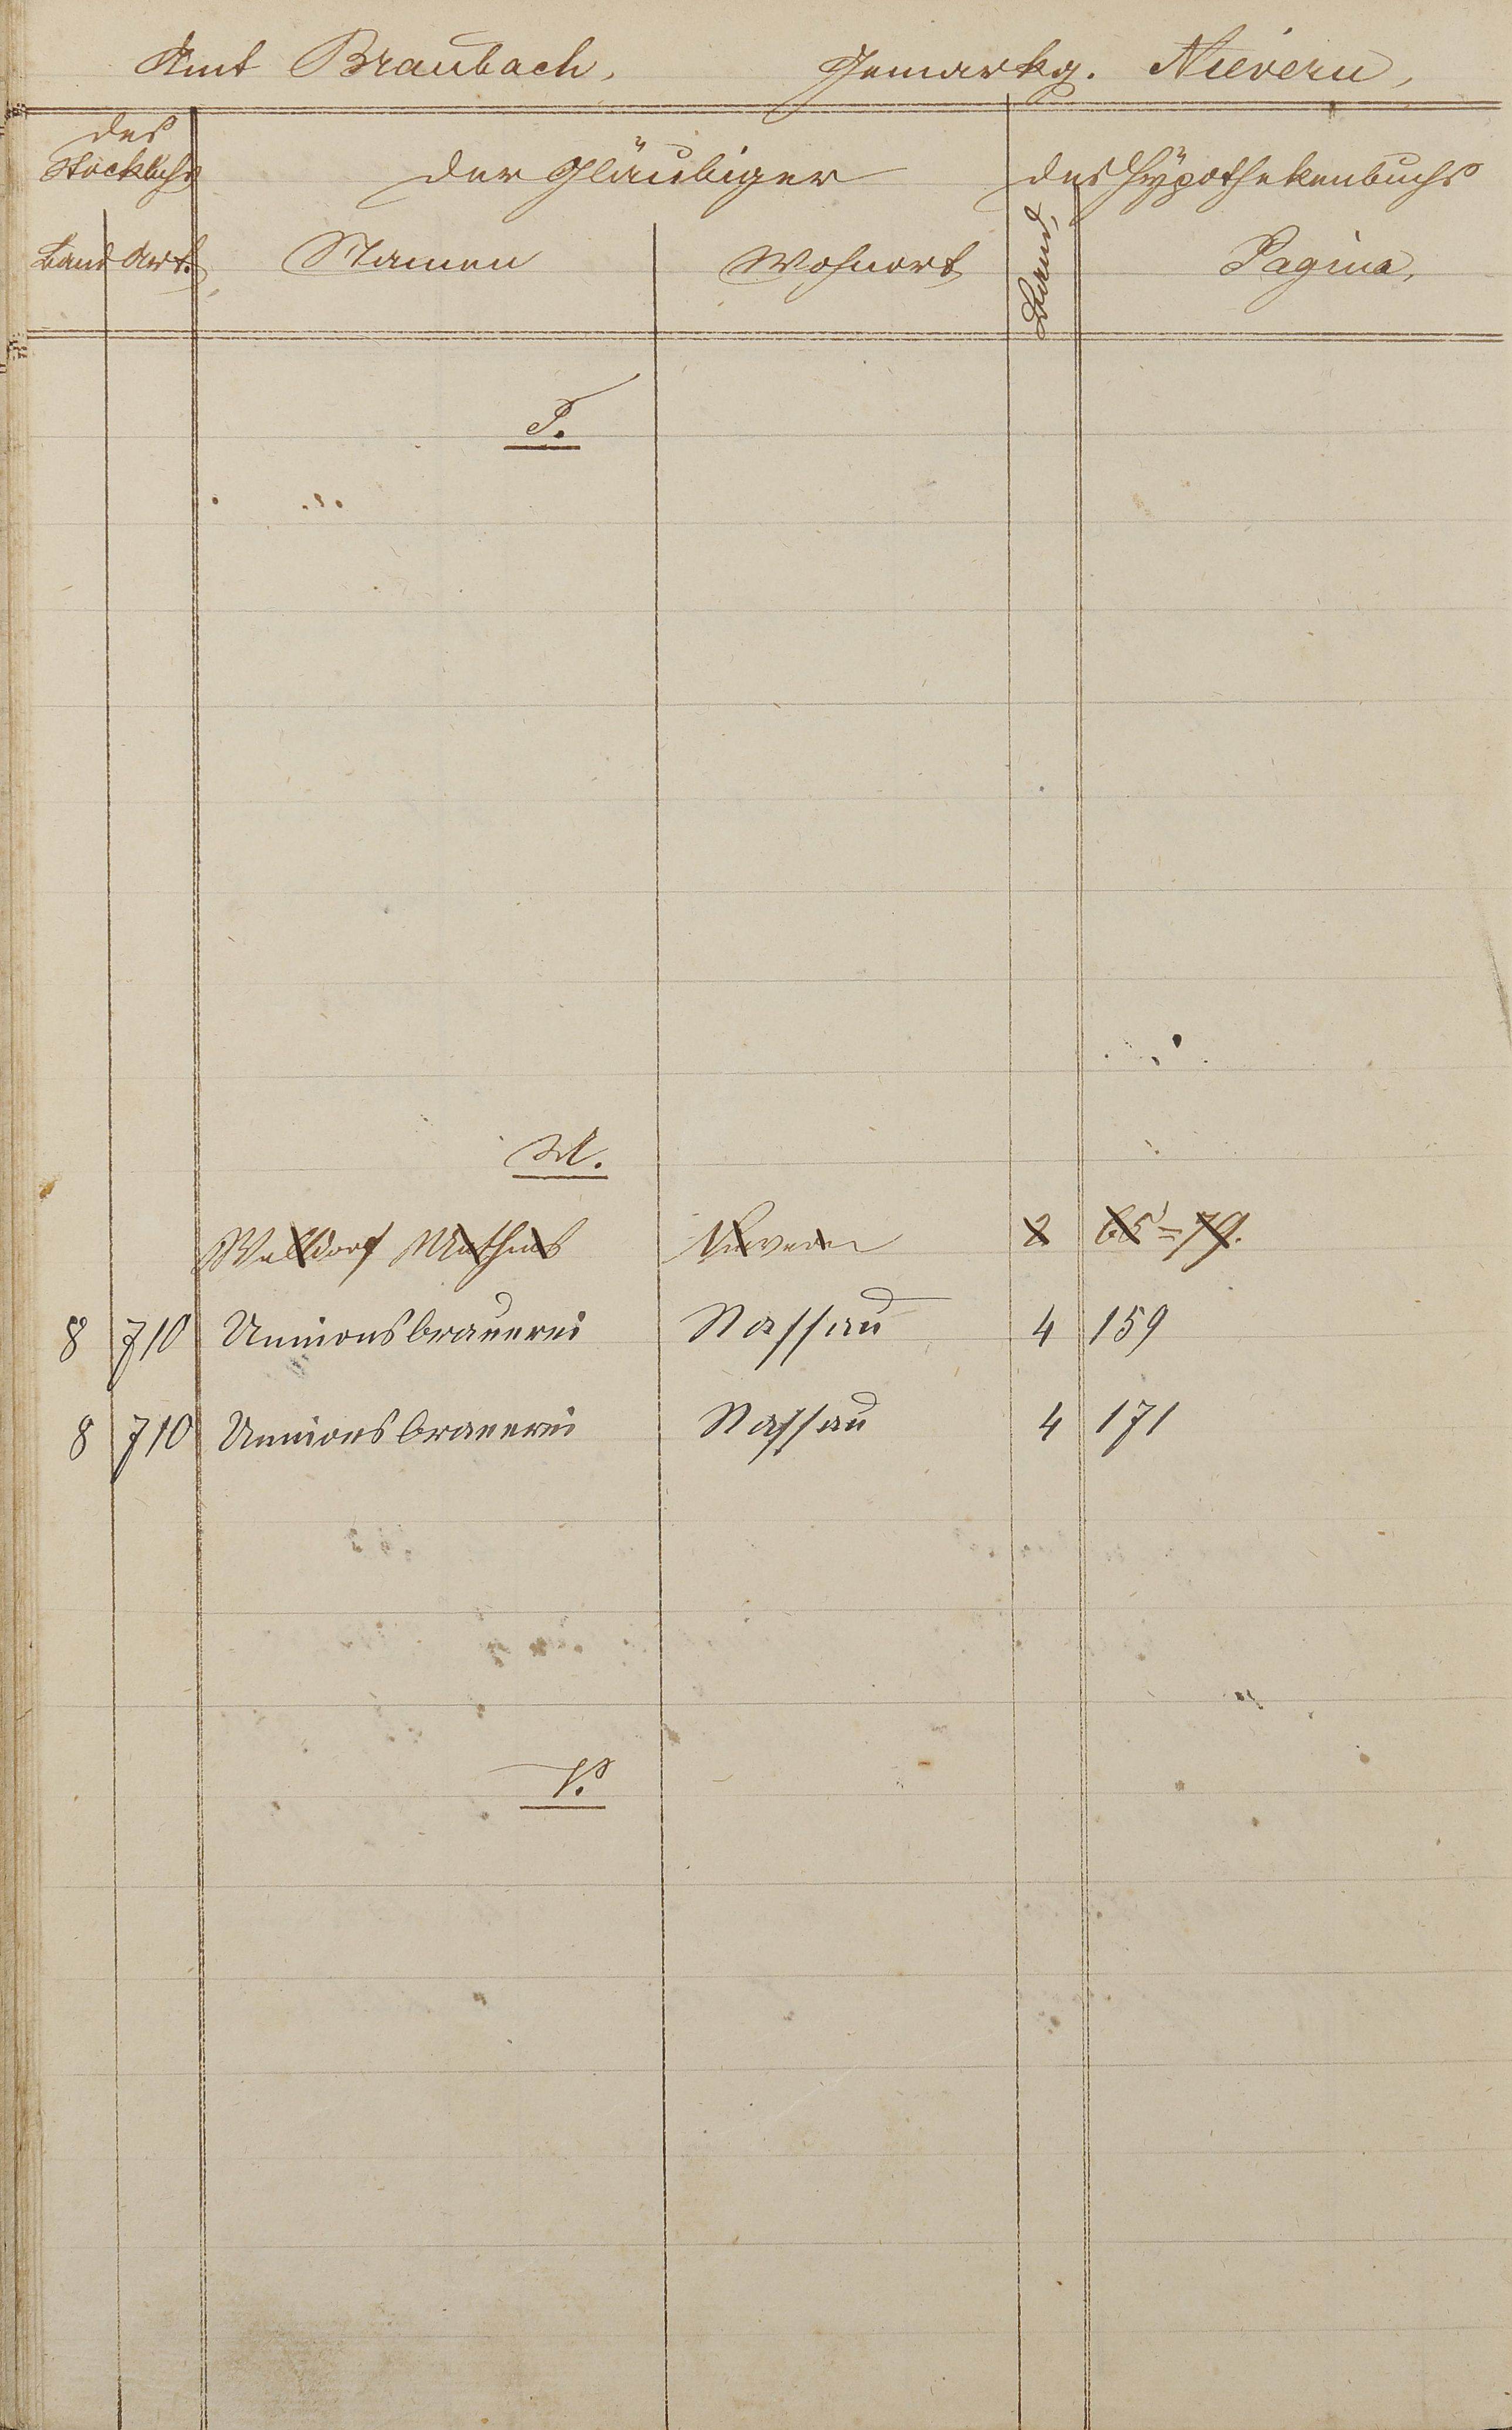 Amt Braubach, Gemarkg. Nievern,
des Stockbuchs der Gläubiger des Hypothekenbuchs
Band Art. Namen Wohnort Band, Pagina,
T.
U.
Walldorf Mathias Nievern 2 65=79.
8 710 Unnionsbrauerei Nassau 4 159
8 710 Unnionsbrauerei Nassau 4 171
V.